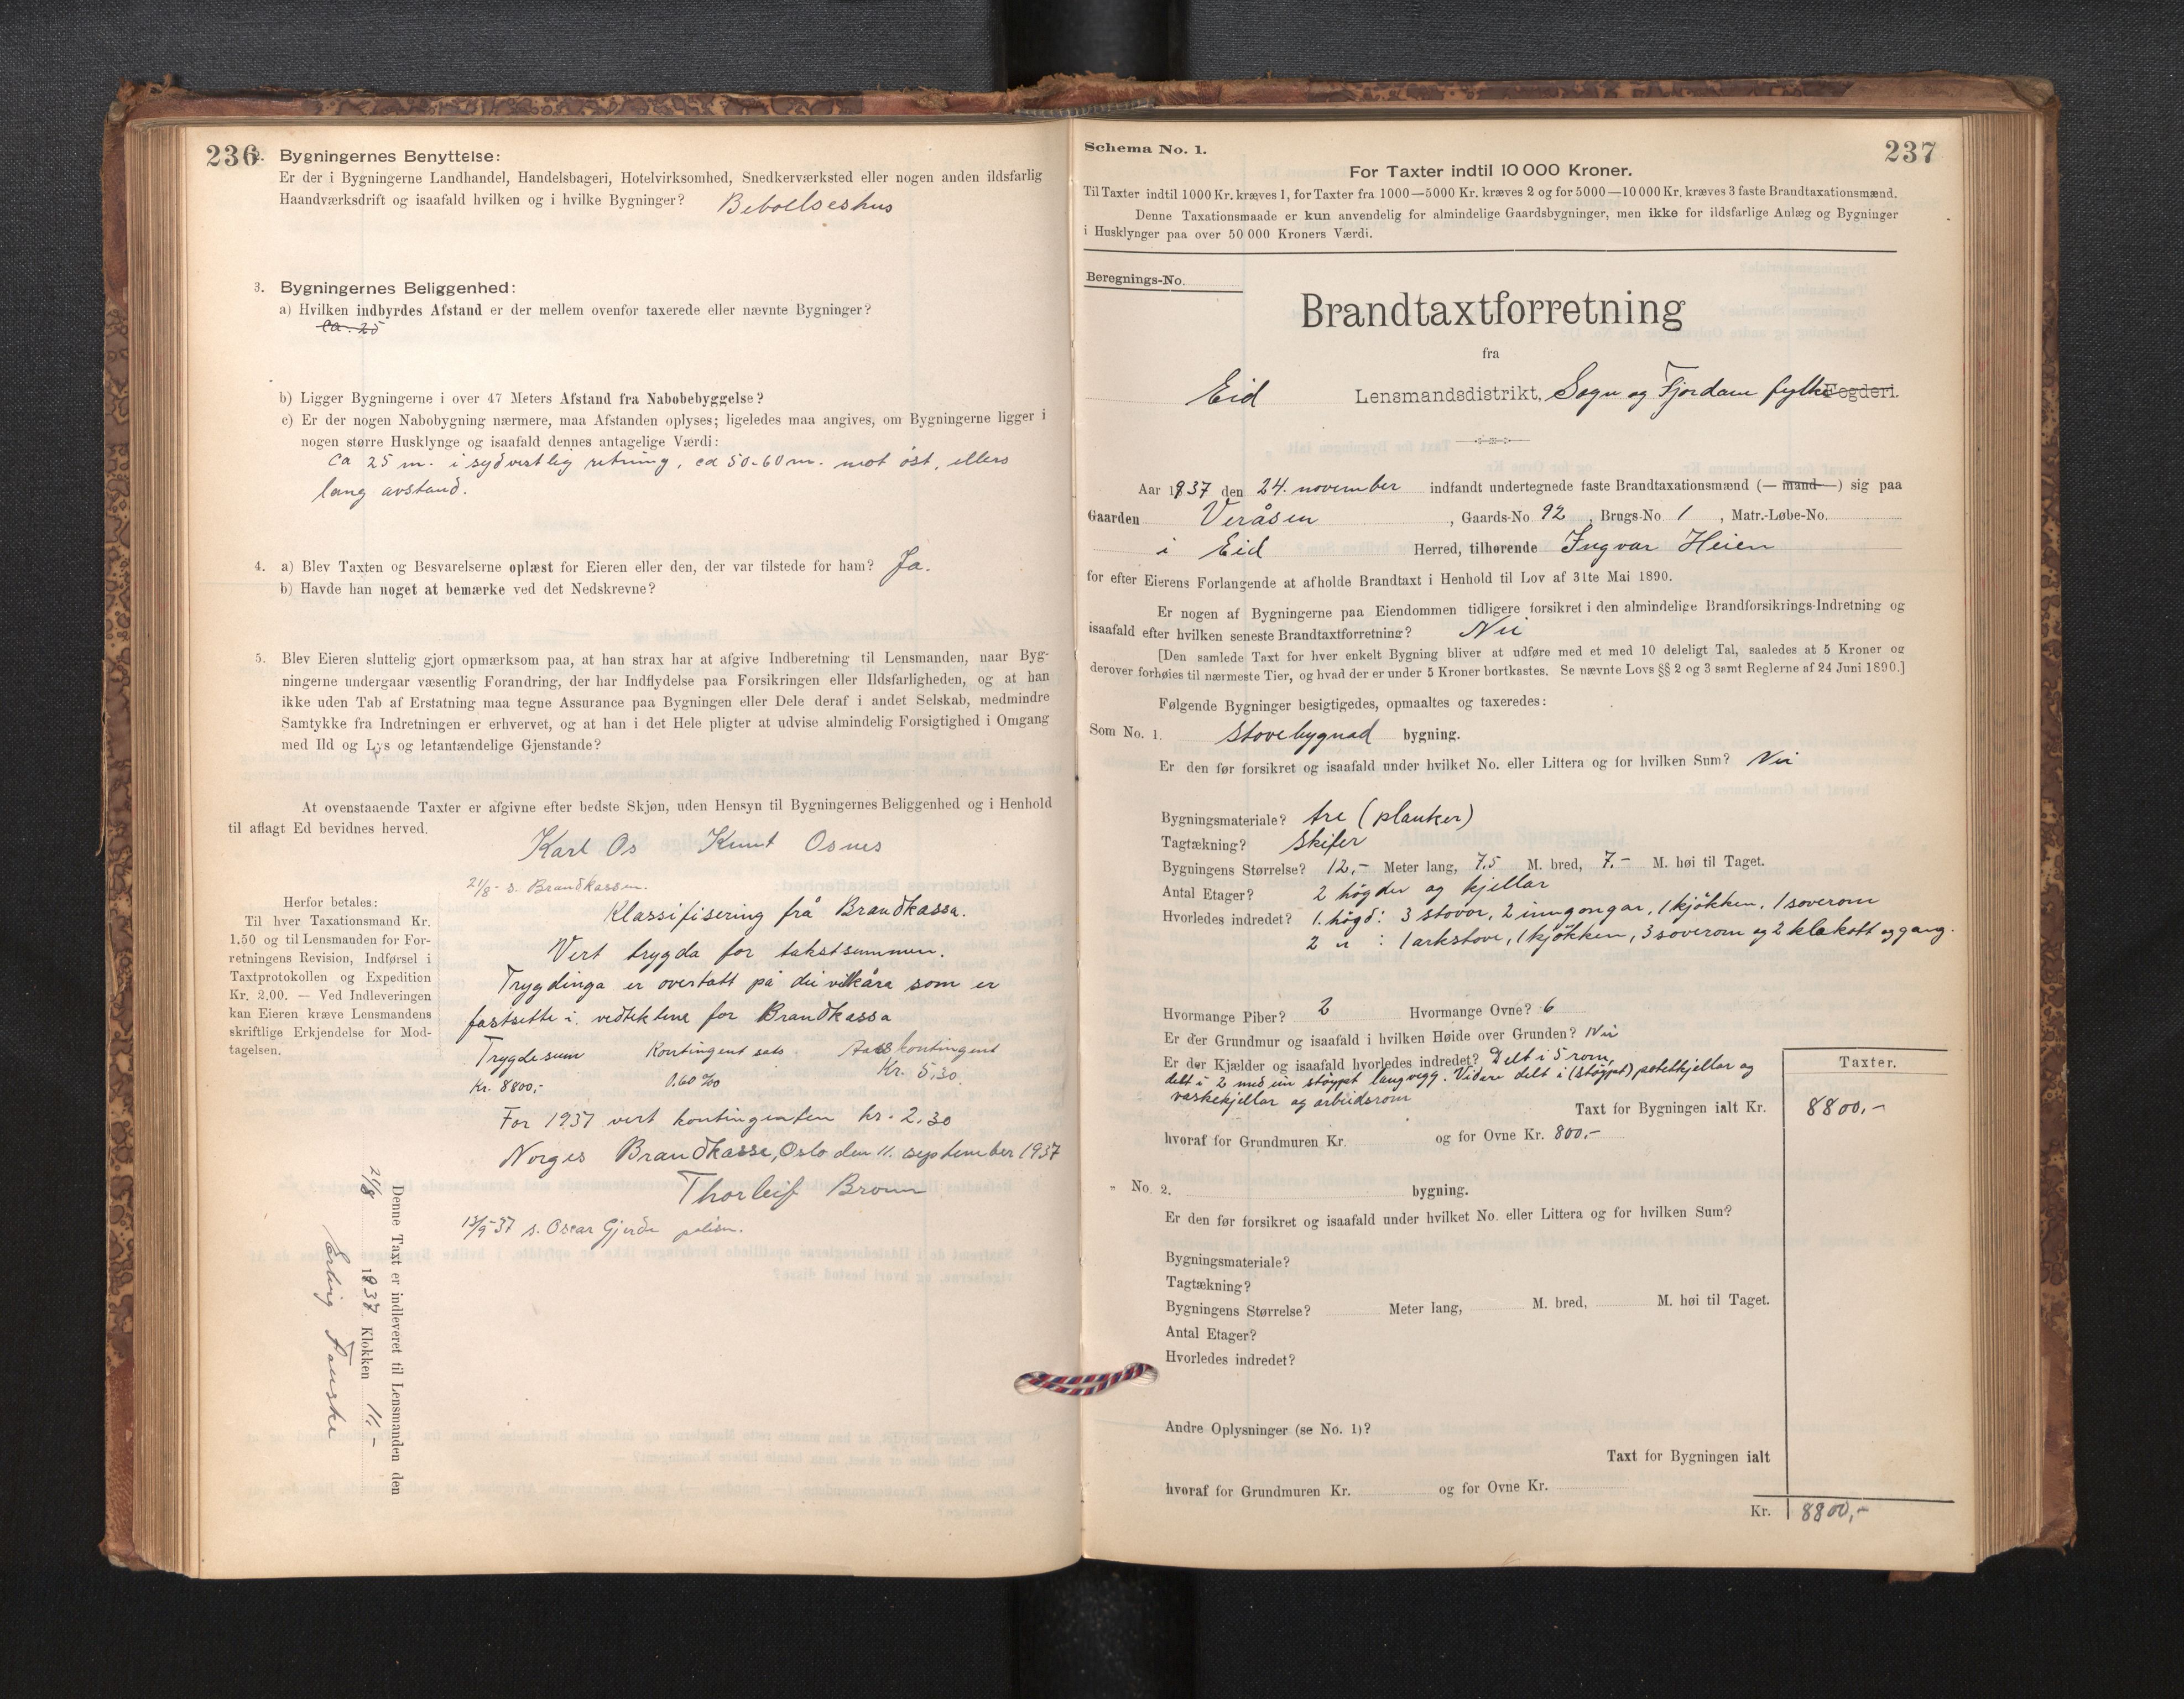 236
2. Bygningernes Benyttelse:
Er der i Bygningerne Landhandel, Handelsbageri, Hotelvirksomhed, Snedkerværksted eller nogen anden ildsfarlig
Haandværksdrift og isaafald hvilken og i hvilke Bygninger? Beboelseshus
3. Bygningernes Beliggenhed:
a) Hvilken indbyrdes Afstand er der mellem ovenfor taxerede eller nævnte Bygninger?
ca. 25
b) Ligger Bygningerne i over 47 Meters Afstand fra Nabobebyggelse?
c) Er der nogen Nabobygning nærmere, maa Afstanden oplyses; ligeledes maa angives, om Bygningerne ligger i
nogen større Husklynge og isaafald dennes antagelige Værdi:
Ca 25 m. i sydvestlig retning, ca 50-60 m. mot öst, ellers
lang avstand.
4. a) Blev Taxten og Besvarelserne oplæst for Eieren eller den, der var tilstede for ham? Ja.
b) Havde han noget at bemærke ved det Nedskrevne?
5. Blev Eieren sluttelig gjort opmærksom paa, at han strax har at afgive Indberetning til Lensmanden, naar Byg-
ningerne undergaar væsentlig Forandring, der har Indflydelse paa Forsikringen eller Ildsfarligheden, og at han
ikke uden Tab af Erstatning maa tegne Assurance paa Bygningen eller Dele deraf i andet Selskab, medmindre
Samtykke fra Indretningen er erhvervet, og at han i det Hele pligter at udvise almindelig Forsigtighed i Omgang
med Ild og Lys og letantændelige Gjenstande?
At ovenstaaende Taxter er afgivne efter bedste Skjøn, uden Hensyn til Bygningernes Beliggenhed og i Henhold
til aflagt Ed bevidnes herved.
Karl Os Knut Osnes
21/8- s. Brandkassen.
Herfor betales:
Til hver Taxationsmand Kr.
1.50 og til Lensmanden for For-
retningens Revision, Indførsel i
Taxtprotokollen og Expedition
Kr. 2.00. — Ved Indleveringen
kan Eieren kræve Lensmandens
skriftlige Erkjendelse for Mod-
tagelsen.
Klassifisering frå Brandkassa.
Vert trygda for takstsummen.
Trygdinga er overtatt på dei vilkåra som er
fastsette i vedtektene for Brandkassa
Trygdesum Kontingentsats Aarskontingent
Kr. 8800,- 0.60 ‰ Kr. 5,30.
For 1937 vert kontingenten kr. 2,30
Norges Brandkasse, Oslo den 11. september 1937
Thorleif Broun
13/9-37 s. Oscar Gjerde polisen.
Denne Taxt er indleveret til Lensmanden den
21/8 1937 Klokken 11,-
Fauske
Schema No. 1.
237
For Taxter indtil 10 000 Kroner.
Til Taxter indtil 1000 Kr. kræves 1, for Taxter fra 1000—5000 Kr. kræves 2 og for 5000—10 000 Kr. kræves 3 faste Brandtaxationsmænd.
Denne Taxationsmaade er kun anvendelig for almindelige Gaardsbygninger, men ikke for ildsfarlige Anlæg og Bygninger
i Husklynger paa over 50 000 Kroners Værdi.
Beregnings-No.
Brandtaxtforretning
fra
Eid Lensmandsdistrikt, Sogn og Fjordane fylke Fogderi.
Aar 1937 den 24. november indfandt undertegnede faste Brandtaxationsmænd (— mand —) sig paa
Gaarden Veråsen, Gaards-No 92, Brugs-No 1, Matr.-Løbe-No.
i Eid Herred, tilhørende Ingvar Heien
for efter Eierens Forlangende at afholde Brandtaxt i Henhold til Lov af 31te Mai 1890.
Er nogen af Bygningerne paa Eiendommen tidligere forsikret i den almindelige Brandforsikrings-Indretning og
isaafald efter hvilken seneste Brandtaxtforretning? Nei
[Den samlede Taxt for hver enkelt Bygning bliver at udføre med et med 10 deleligt Tal, saaledes at 5 Kroner og
derover forhøies til nærmeste Tier, og hvad der er under 5 Kroner bortkastes. Se nævnte Lovs §§ 2 og 3 samt Reglerne af 24 Juni 1890.]
Følgende Bygninger besigtigedes, opmaaltes og taxeredes:
Som No. 1. Stovebygnad bygning.
Er den før forsikret og isaafald under hvilket No. eller Littera og for hvilken Sum? Nei
Bygningsmateriale? tre (planker)
Tagtækning? Skifer
Bygningens Størrelse? 12,- Meter lang, 7,5 M. bred, 7.- M. høi til Taget.
Antal Etager? 2 högder og kjellar
Hvorledes indredet? 1. högd: 3 stovor, 2 inngongar, 1 kjökken, 1 soverom
2 " : 1 arkstove, 1 kjökken, 3 soverom og 2 klekott og gang.
Hvormange Piber? 2 Hvormange Ovne? 6
Er der Grundmur og isaafald i hvilken Høide over Grunden? Nei
Er der Kjælder og isaafald hvorledes indredet? Delt i 5 rom,
delt i 2 med ein stöypt langvegg. Vidare delt i (stöypt) potetkjellar og
vaskekjellar og arbeidsrom
Taxter.
Taxt for Bygningen ialt Kr. 8800,-
hvoraf for Grundmuren Kr. og for Ovne Kr. 800,-
„ No. 2. bygning.
Er den før forsikret og isaafald under hvilket No. eller Littera og for hvilken Sum?
Bygningsmateriale?
Tagtækning?
Bygningens Størrelse? Meter lang, M. bred, M. høi til Taget.
Antal Etager?
Hvorledes indredet?
Andre Oplysninger (se No. 1)?
Taxt for Bygningen ialt
hvoraf for Grundmuren Kr. og for Ovne Kr.
Kr. 8800,-